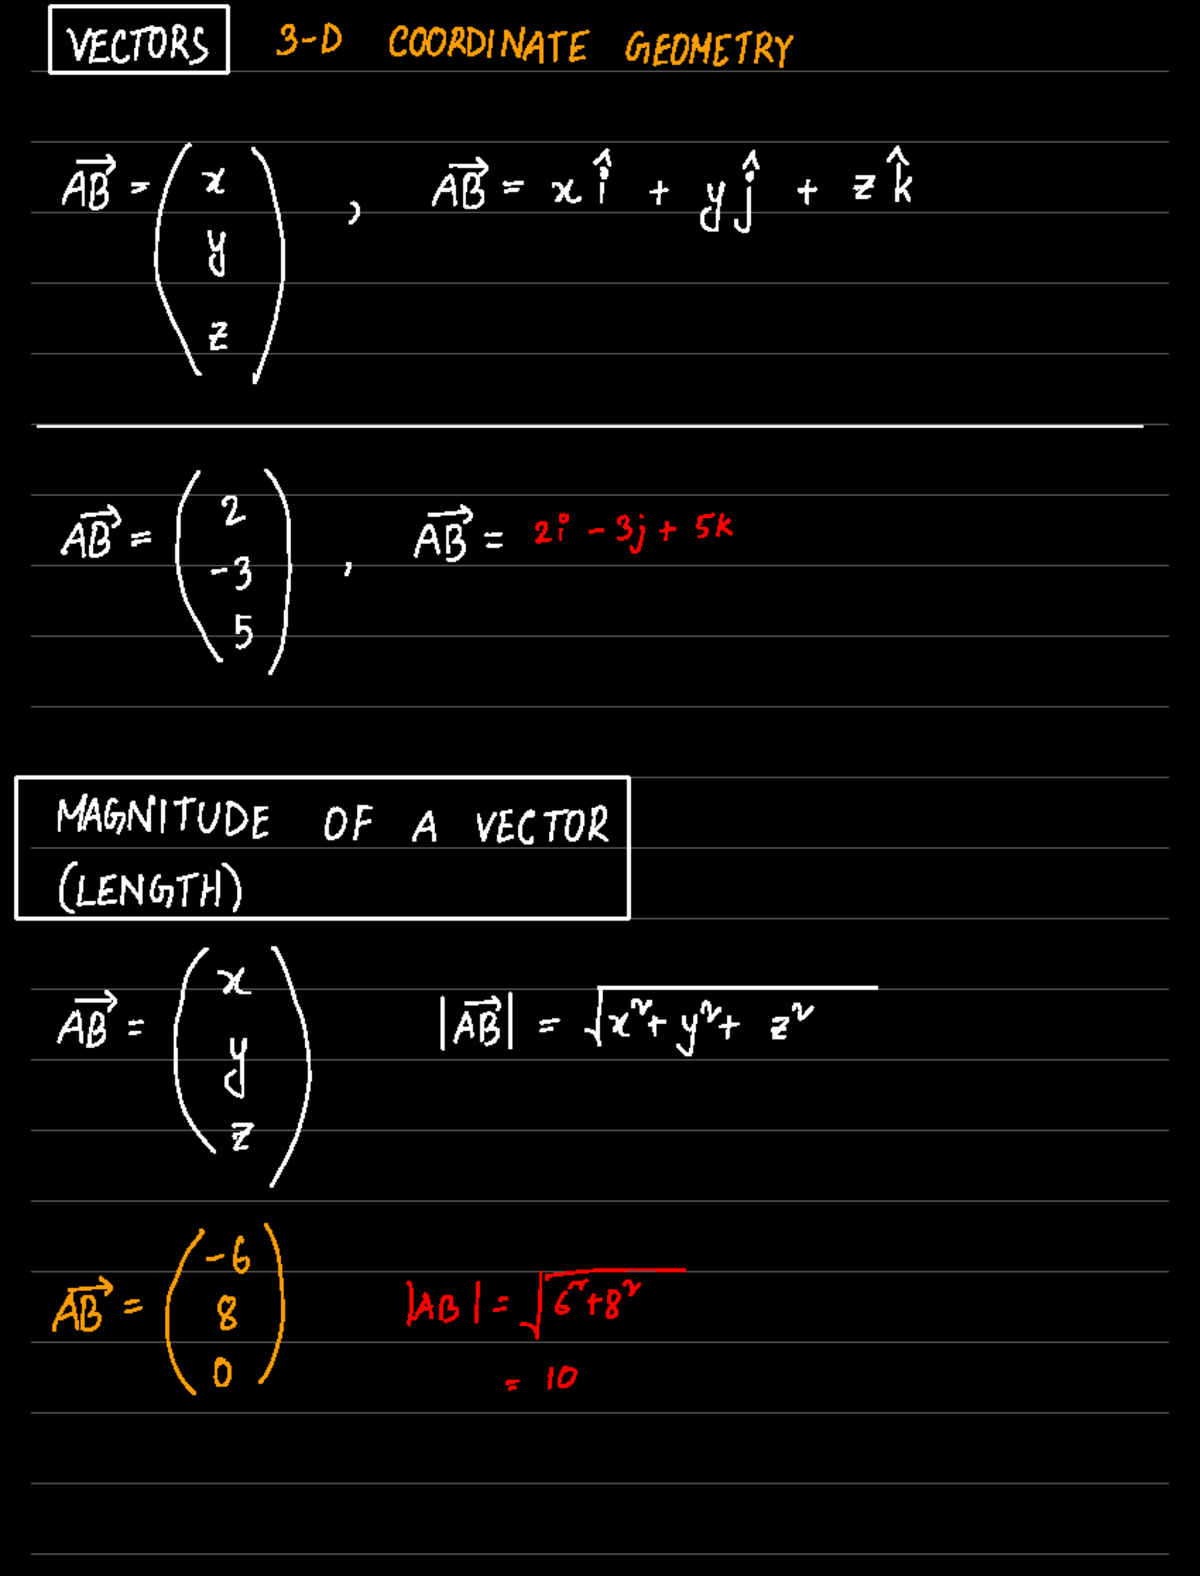 VECTORS 3-D COORDINATE GEOMETRY
AB→ = (x y z) , AB→ = x î + y ĵ + z k̂
AB→ = (2 -3 5) , AB→ = 2i - 3j + 5k
MAGNITUDE OF A VECTOR
(LENGTH)
AB→ = (x y z) |AB→| = √x² + y² + z²
AB→ = (-6 8 0) |AB| = √6² + 8²
= 10